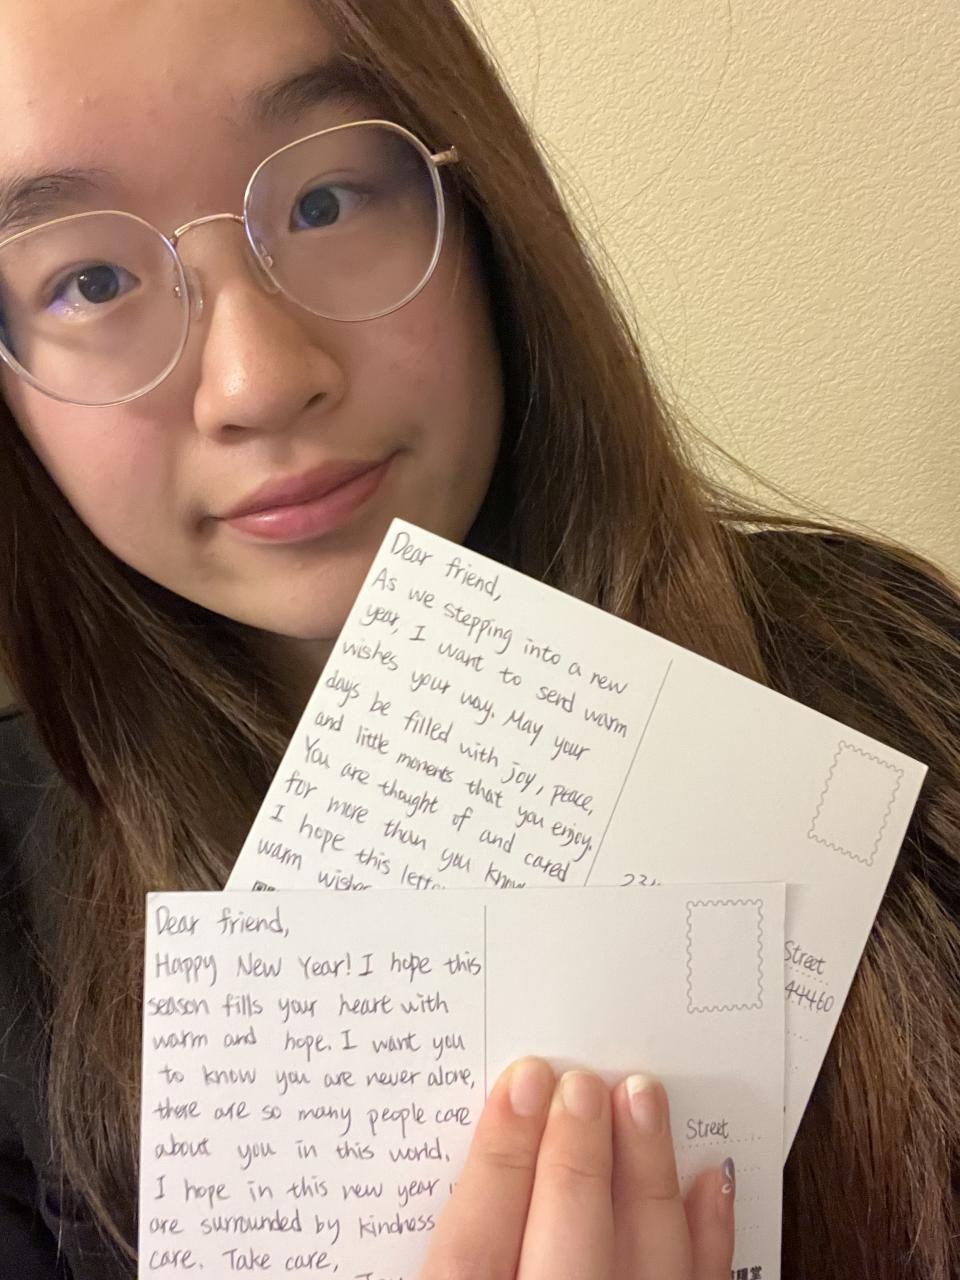 Dear friend,
As we stepping into a new
year, I want to send warm
wishes your way. May your
days be filled with joy, peace,
and little moments that you enjoy.
You are thought of and cared
for more than you know
I hope this
warm
Street
44460
Dear friend,
Happy New Year! I hope this
season fills your heart with
warm and hope. I want you
to know you are never alone,
there are so many people care
about you in this world.
I hope in this new year
are surrounded by kindness
care. Take care,
Street